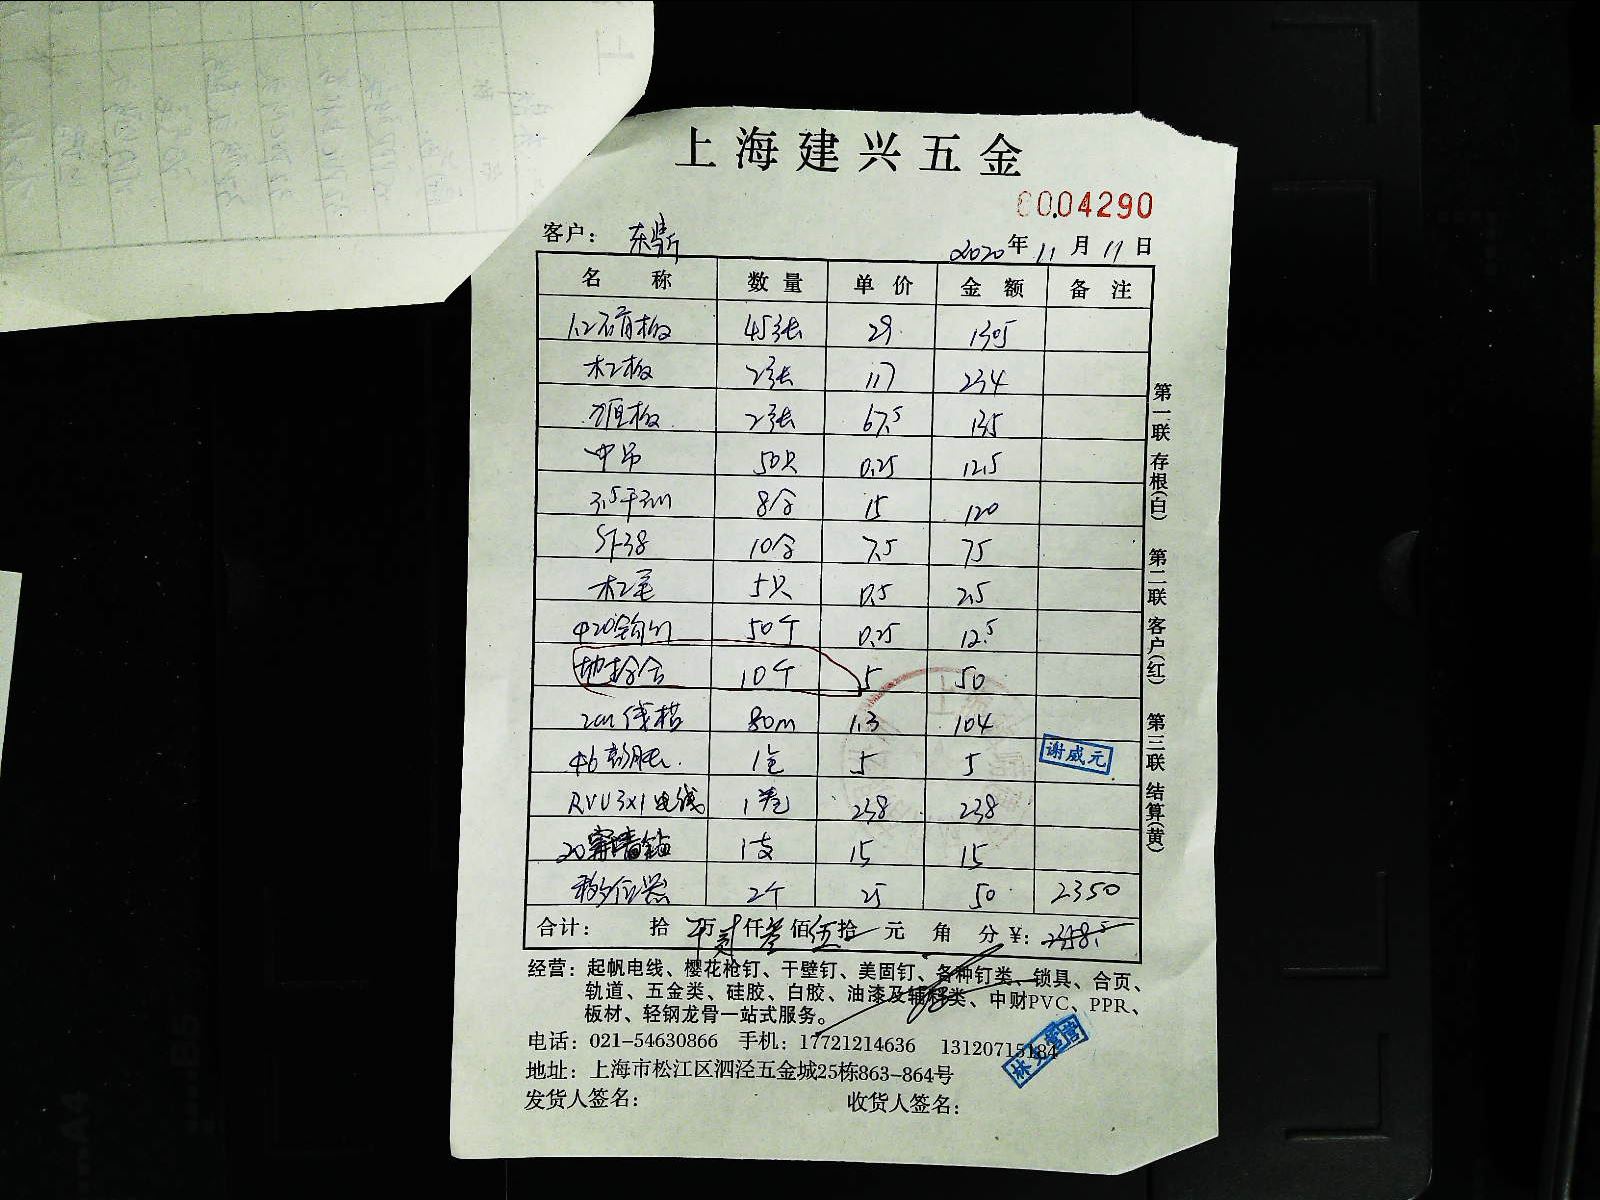 上海建兴五金
0004290
客户： 东鼎 2020年11月11日
名 称 数量 单价 金额 备注
1.2石膏板 45张 29 1305
木工板 2张 117 234
2张 67.5 135
中吊 50只 0.25 12.5
3.5干钉 8合 15 120
ST38 10合 7.5 75
木工笔 5只 0.5 2.5
Φ20 50个 0.25 12.5
地插合 10个 5 50
2cm线槽 80m 1.3 104
谢威元
Φ6膨胀 1包 5 5
RVV3x1电线 1卷 238 238
20穿墙钻 1支 15 15
移位器 2个 25 50 2350
合计： 拾 万贰仟叁佰伍拾 元 角 分 ¥: 2358.5
经营：起帆电线、樱花枪钉、干壁钉、美固钉、各种钉类、锁具、合页、
轨道、五金类、硅胶、白胶、油漆及辅料类、中财PVC、PPR、
板材、轻钢龙骨一站式服务。
电话：021-54630866 手机：17721214636 13120715184
地址：上海市松江区泗泾五金城25栋863-864号
发货人签名： 收货人签名：
第一联 存根(白) 第二联 客户(红) 第三联 结算(黄)